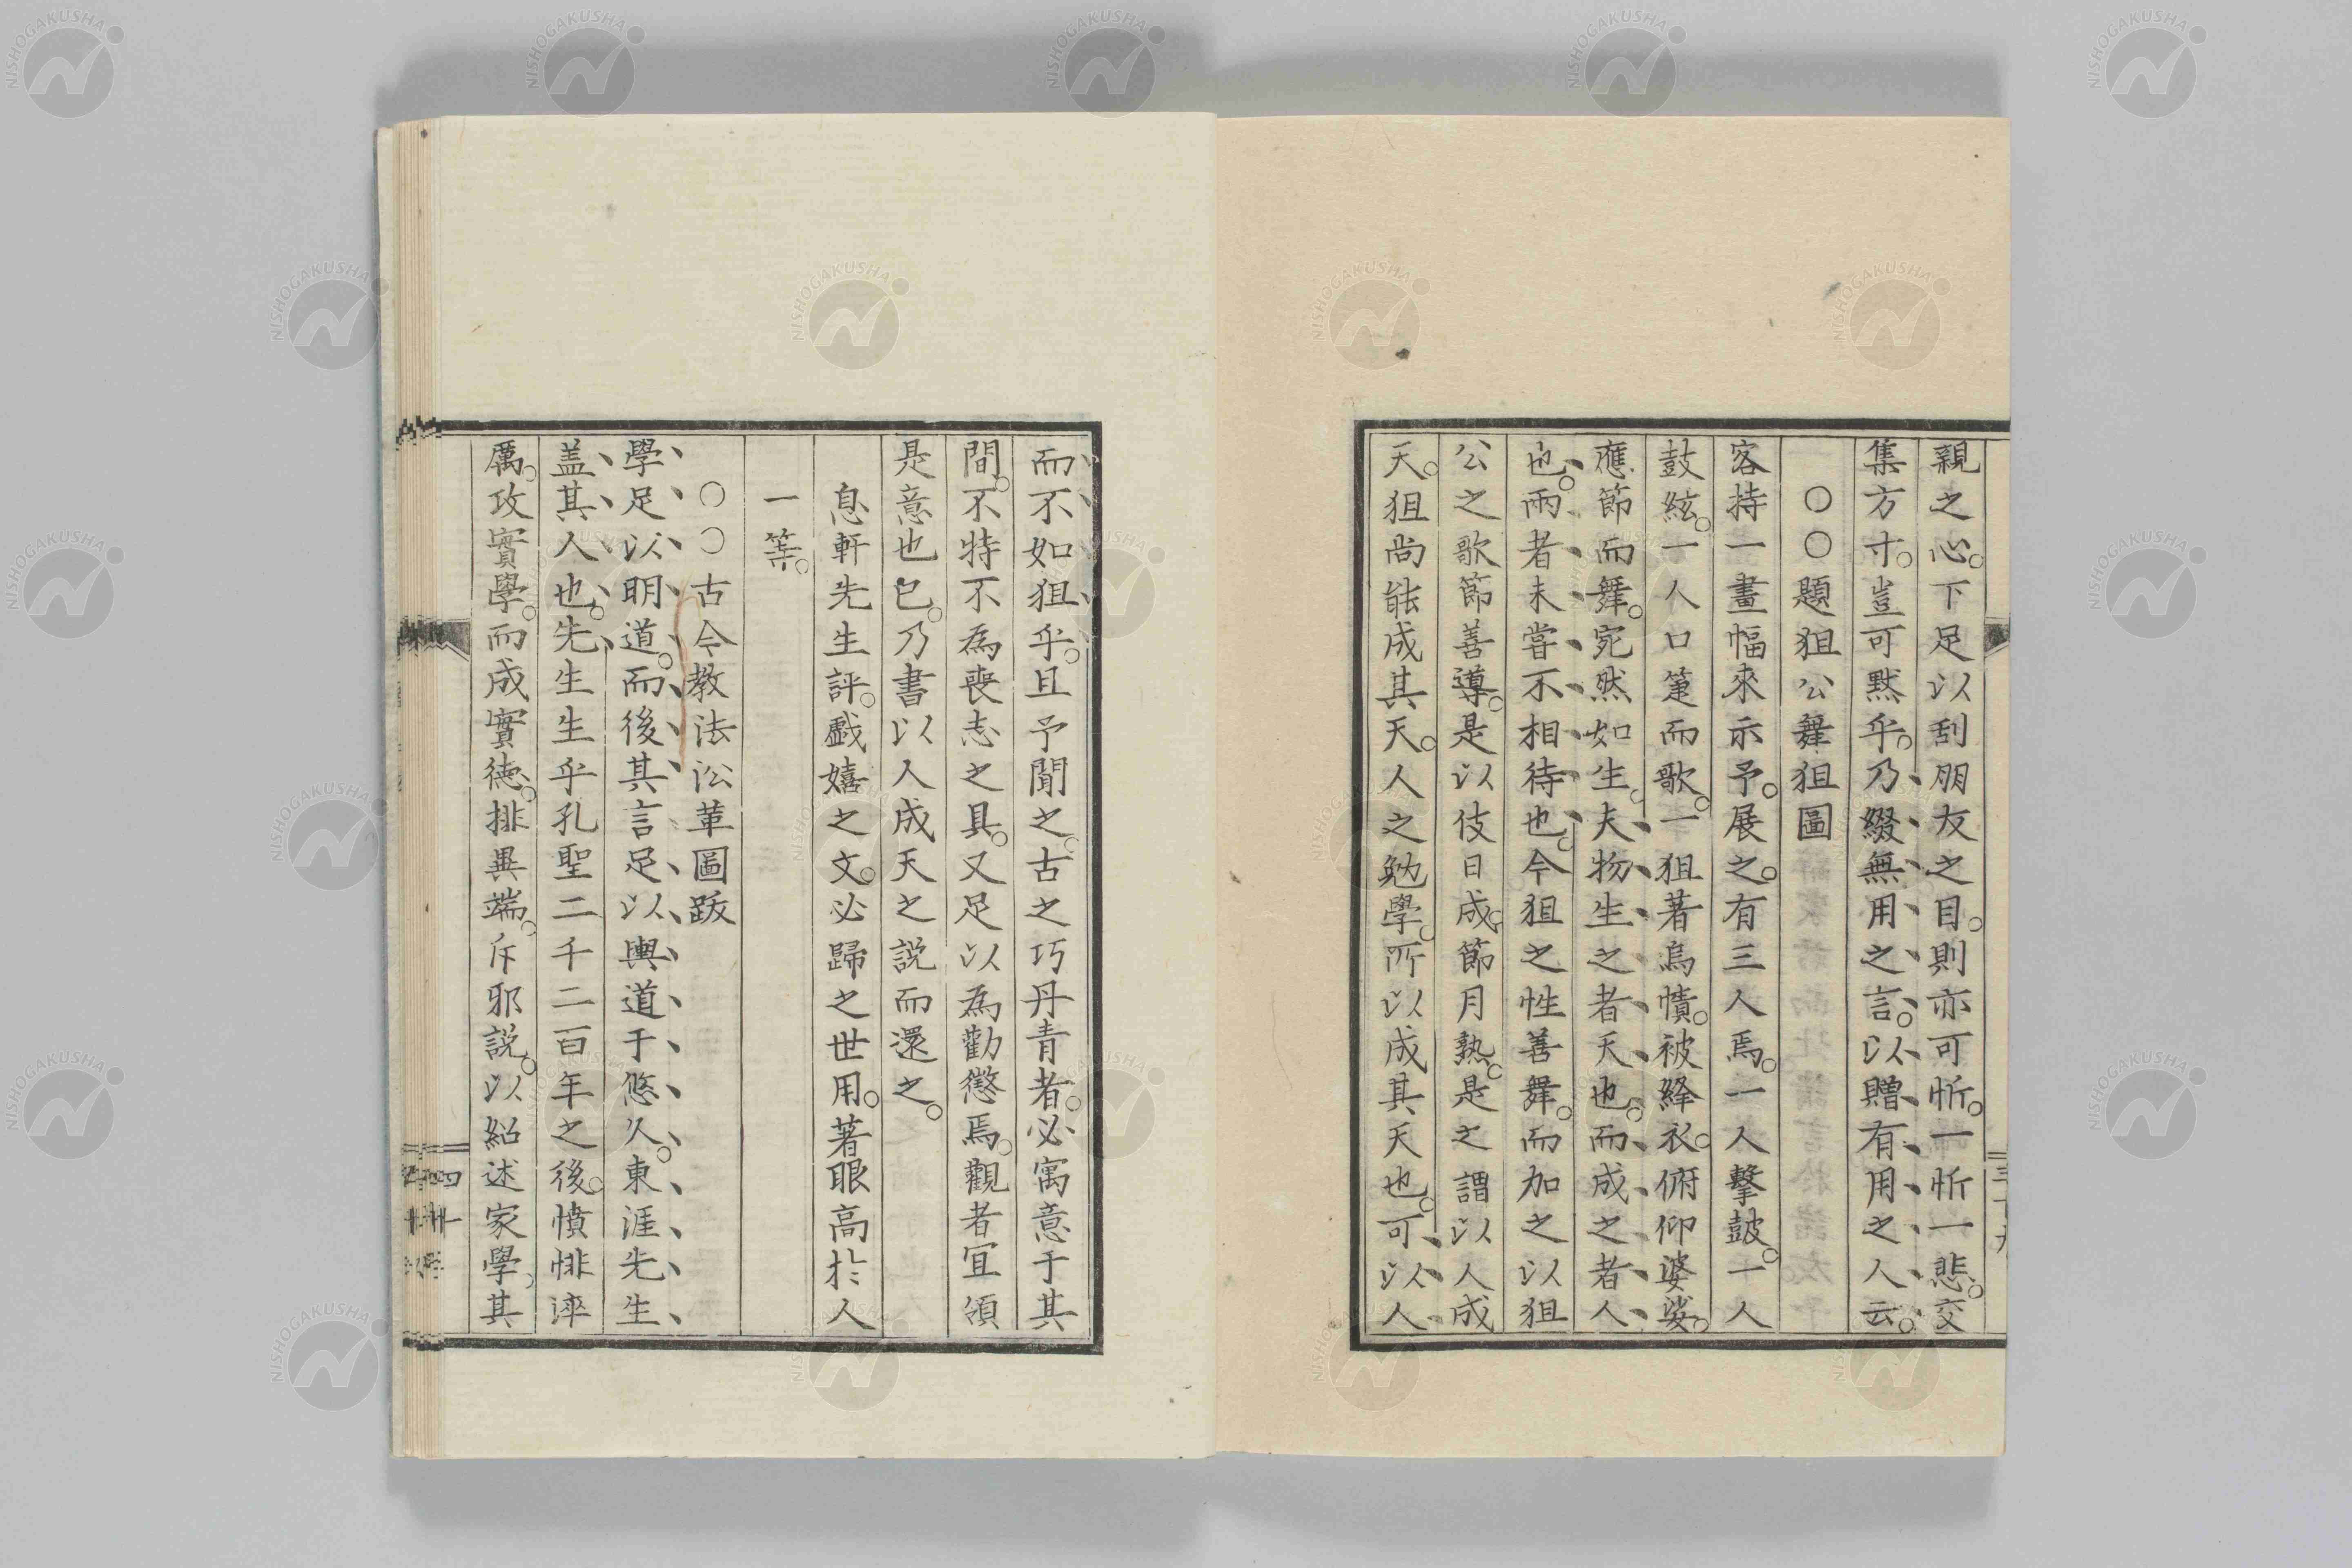 親之心。下足以刮朋友之目。則亦可忻。一忻一悲。交
集方寸。豈可黙乎。乃綴無用之言。以贈有用之人云。
〇〇題狙公舞狙圖
客持一畫幅來示予。展之。有三人焉。一人擊鼓。一人
鼓絃。一人口箑而歌。一狙著烏幘。被絳衣。俯仰婆娑。
應節而舞。宛然如生。夫物生之者天也。而成之者人
也。兩者未嘗不相待也。今狙之性善舞。而加之以狙
公之歌節善導。是以伎日成。節月熟。是之謂以人成
天。狙尚能成其天。人之勉學。所以成其天也。可以人
而不如狙乎。且予聞之。古之巧丹青者。必寓意于其
間。不特不為喪志之具。又足以為勸懲焉。觀者宜領
是意也已。乃書以人成天之説而還之。
息軒先生評。戲嬉之文。必歸之世用。著眼高於人
一等。
〇〇古今教法沿革圖跋
學足以明道。而後其言足以輿道于悠久。東涯先生
盖其人也。先生生乎孔聖二千二百年之後。憤悱淬
厲。攻實學。而成實徳。排異端。斥邪説。以紹述家學。其
三十九
四十
NISHOGAKUSHA